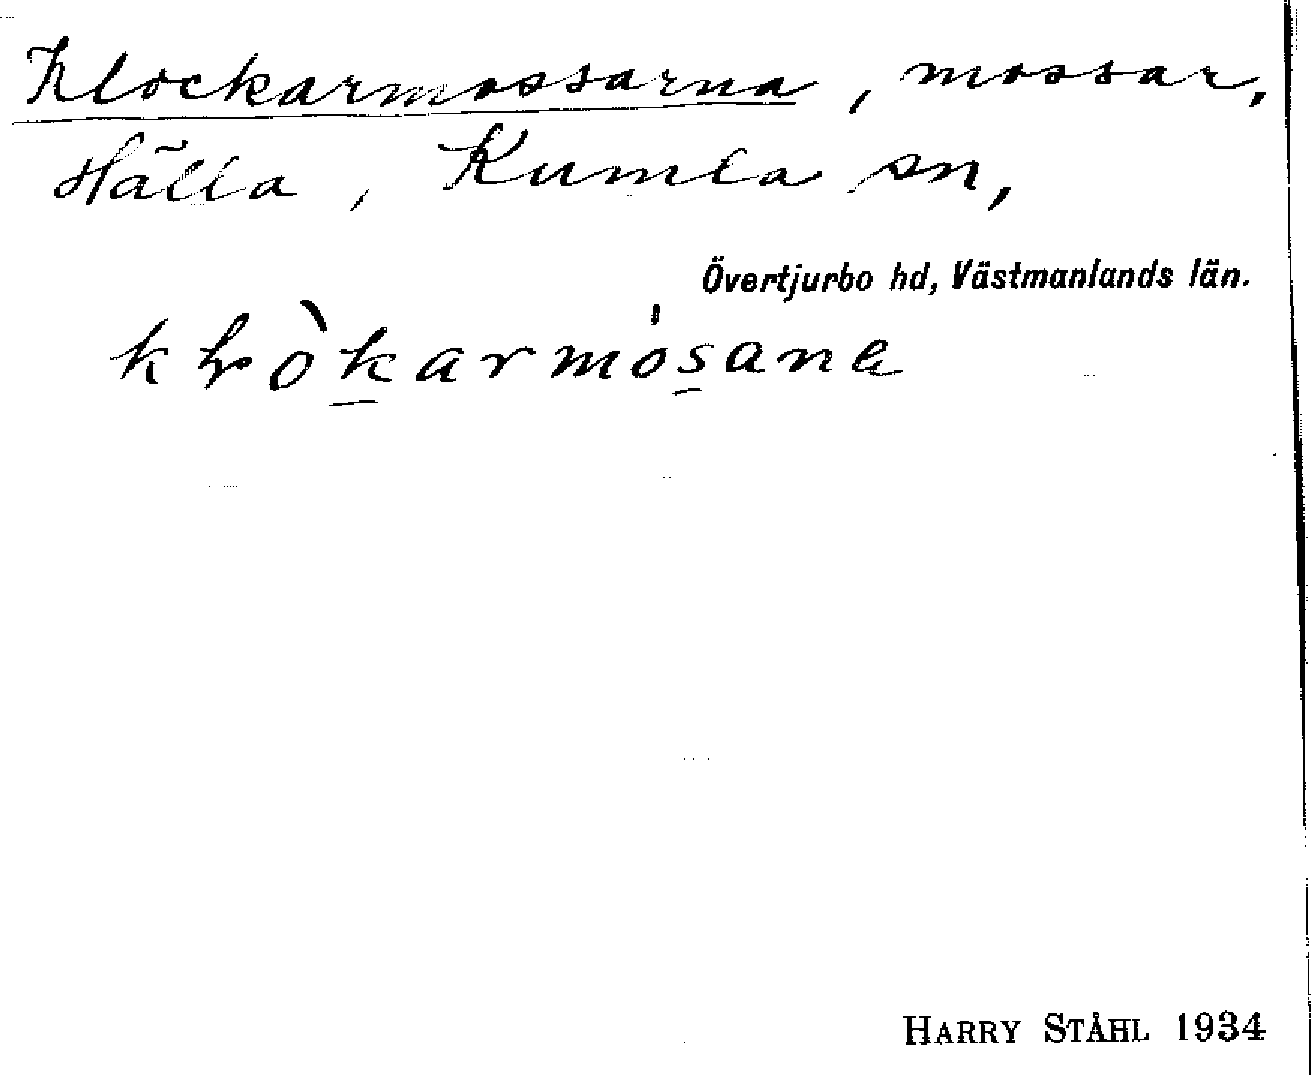 Klockarmossarna, mossar,
Hälla, Kumla sn,
Övertjurbo hd, Västmanlands län.
kłòk̲armós̲ana
HARRY STÅHL 1934